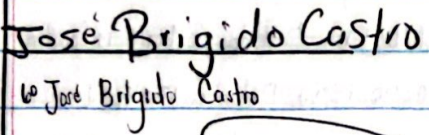 José Brigido Castro
José Brigido Castro